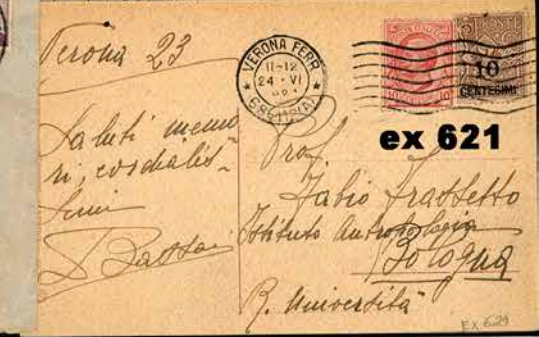 Verona 23
Saluti memo
ri, cordialis-
simi
VERONA FERR.
11-12
24 · VI
POSTE
10
CENTESIMI
ex 621
Prof.
Fabio Frassetto
Istituto Antropologia
Bologna
R. Università
EX 621